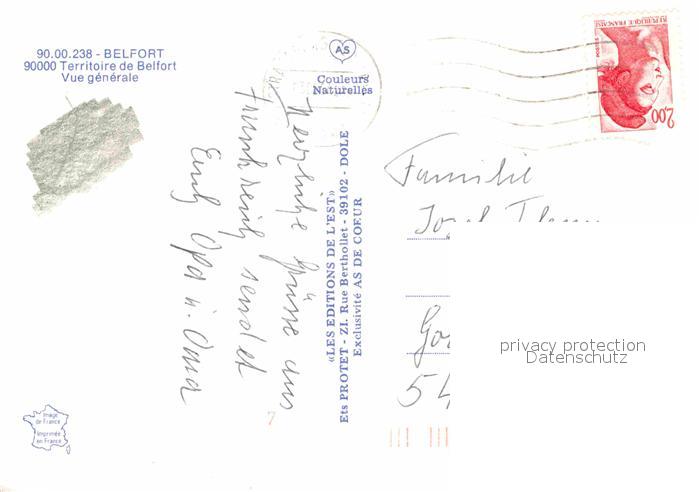 90.00.238 - BELFORT
90000 Territoire de Belfort
Vue générale
AS
Couleurs
Naturelles
REPUBLIQUE FRANÇAISE
POSTES
2,00
Herzliche Grüsse aus
Frankreich sendet
Euch Opa u. Oma
«LES EDITIONS DE L'EST»
Ets PROTET - ZI. Rue Berthollet - 39102 - DOLE
Exclusivité AS DE COEUR
Familie
54
privacy protection
Datenschutz
Image
de France
Imprimée
en France
7